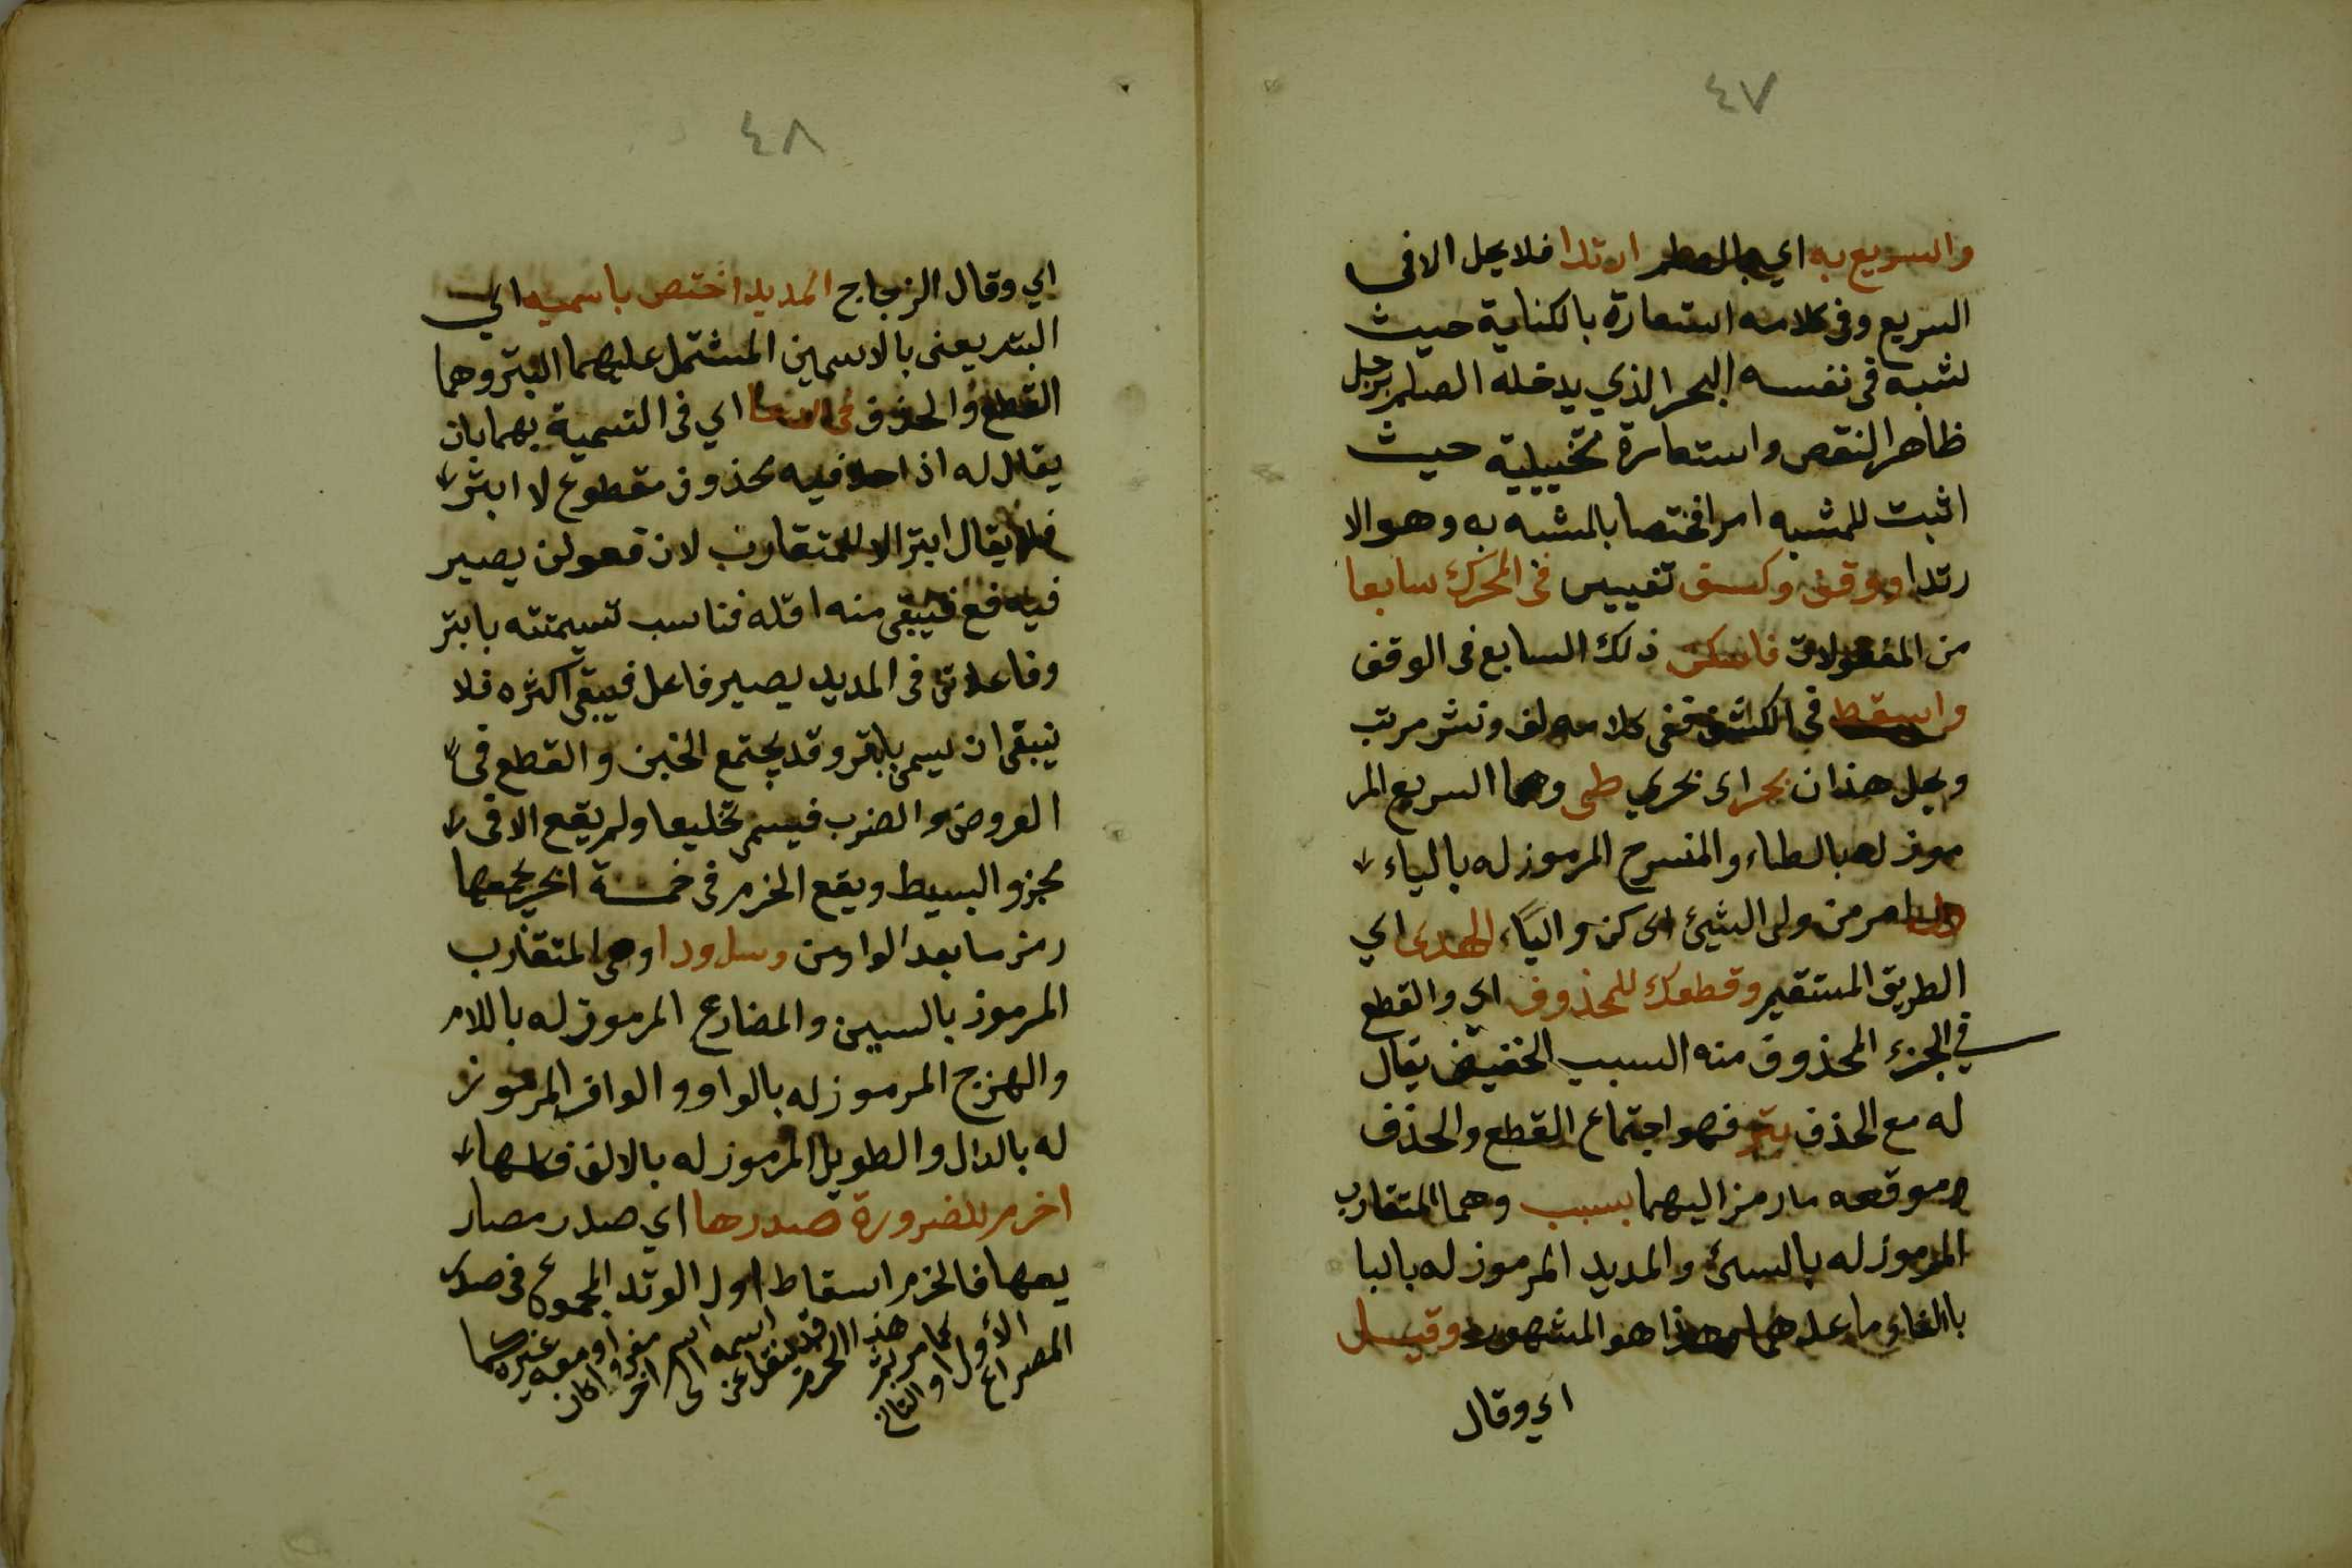 ٤٧
والسريع به اي بالصلم ارتدا فلا يحل الا في
السريع وفي كلامه استعارة بالكناية حيث
شبه في نفسه البحر الذي يدخله الصلم برجل
ظاهر النقص واستعارة تخييلية حيث
اثبت للمشبه امرا مختصا بالمشبه به وهو الا
رتدا ووقف وكسف تغيير في المحرك سابعا
من المفعولات فاسكن ذلك السابع في الوقف
واسقط في الكشف ففي كلامه لف ونشر مرتب
ويحل هذان بحراي بحري طي وهما السريع المر
موز له بالطاء والمنسرح المرموز له بالياء
امر من ولي الشيئ اي كن والياء الهدى اي
الطريق المستقيم وقطعك للمحذوف اي والقطع
في الجزء المحذوف منه السبب الخفيف يقال
له مع الحذف بتر فهو اجتماع القطع والحذف
وموقعه ما رمز اليهما بسبب وهما المتقارب
المرموز له بالسين والمديد المرموز له بالبا
بالغاء ما عداهما هذا هو المشهور وقيل
اي وقال
٤٨
اي وقال الزجاج المديد اختص باسميه اي
البتر يعني بالاسمين المشتمل عليهما البتر وهما
القطع والحذف في الدعا اي في التسمية بهما بان
يقال له اذا حلا فيه محذوف مقطوع لا ابتر
فلا يقال ابتر الا للمتقارب لان فعولن يصير
فيه فع فيبقى منه اقله فناسب تسيمتته بابتر
وفاعلاتن في المديد يصير فاعل فيبقى اكثره فلا
ينبقي ان يسمى بابتر وقد يجتمع الخبن والقطع في
العروض والضرب فيسمى تخليعا ولم يقع الا في
مجزو البسيط ويقع الخرم في خمسة ابحر يجمعها
رمز ما بعد الواو من وسلودا وهي المتقارب
المرموز بالسين والمضارع المرموز له باللام
والهزج المرموز له بالواو والوافر المرموز
له بالدال والطويل المرموز له بالالف فكلها
اخرم للضرورة صدرها اي صدر مصار
يعها فالخرم اسقاط اول الوتد المجموع في صدر
المصراع الاول او الثاني كما مر ثم هذا الخرم قد ينقل عن اسمه الى اسم اخر مفرد او معه غيره